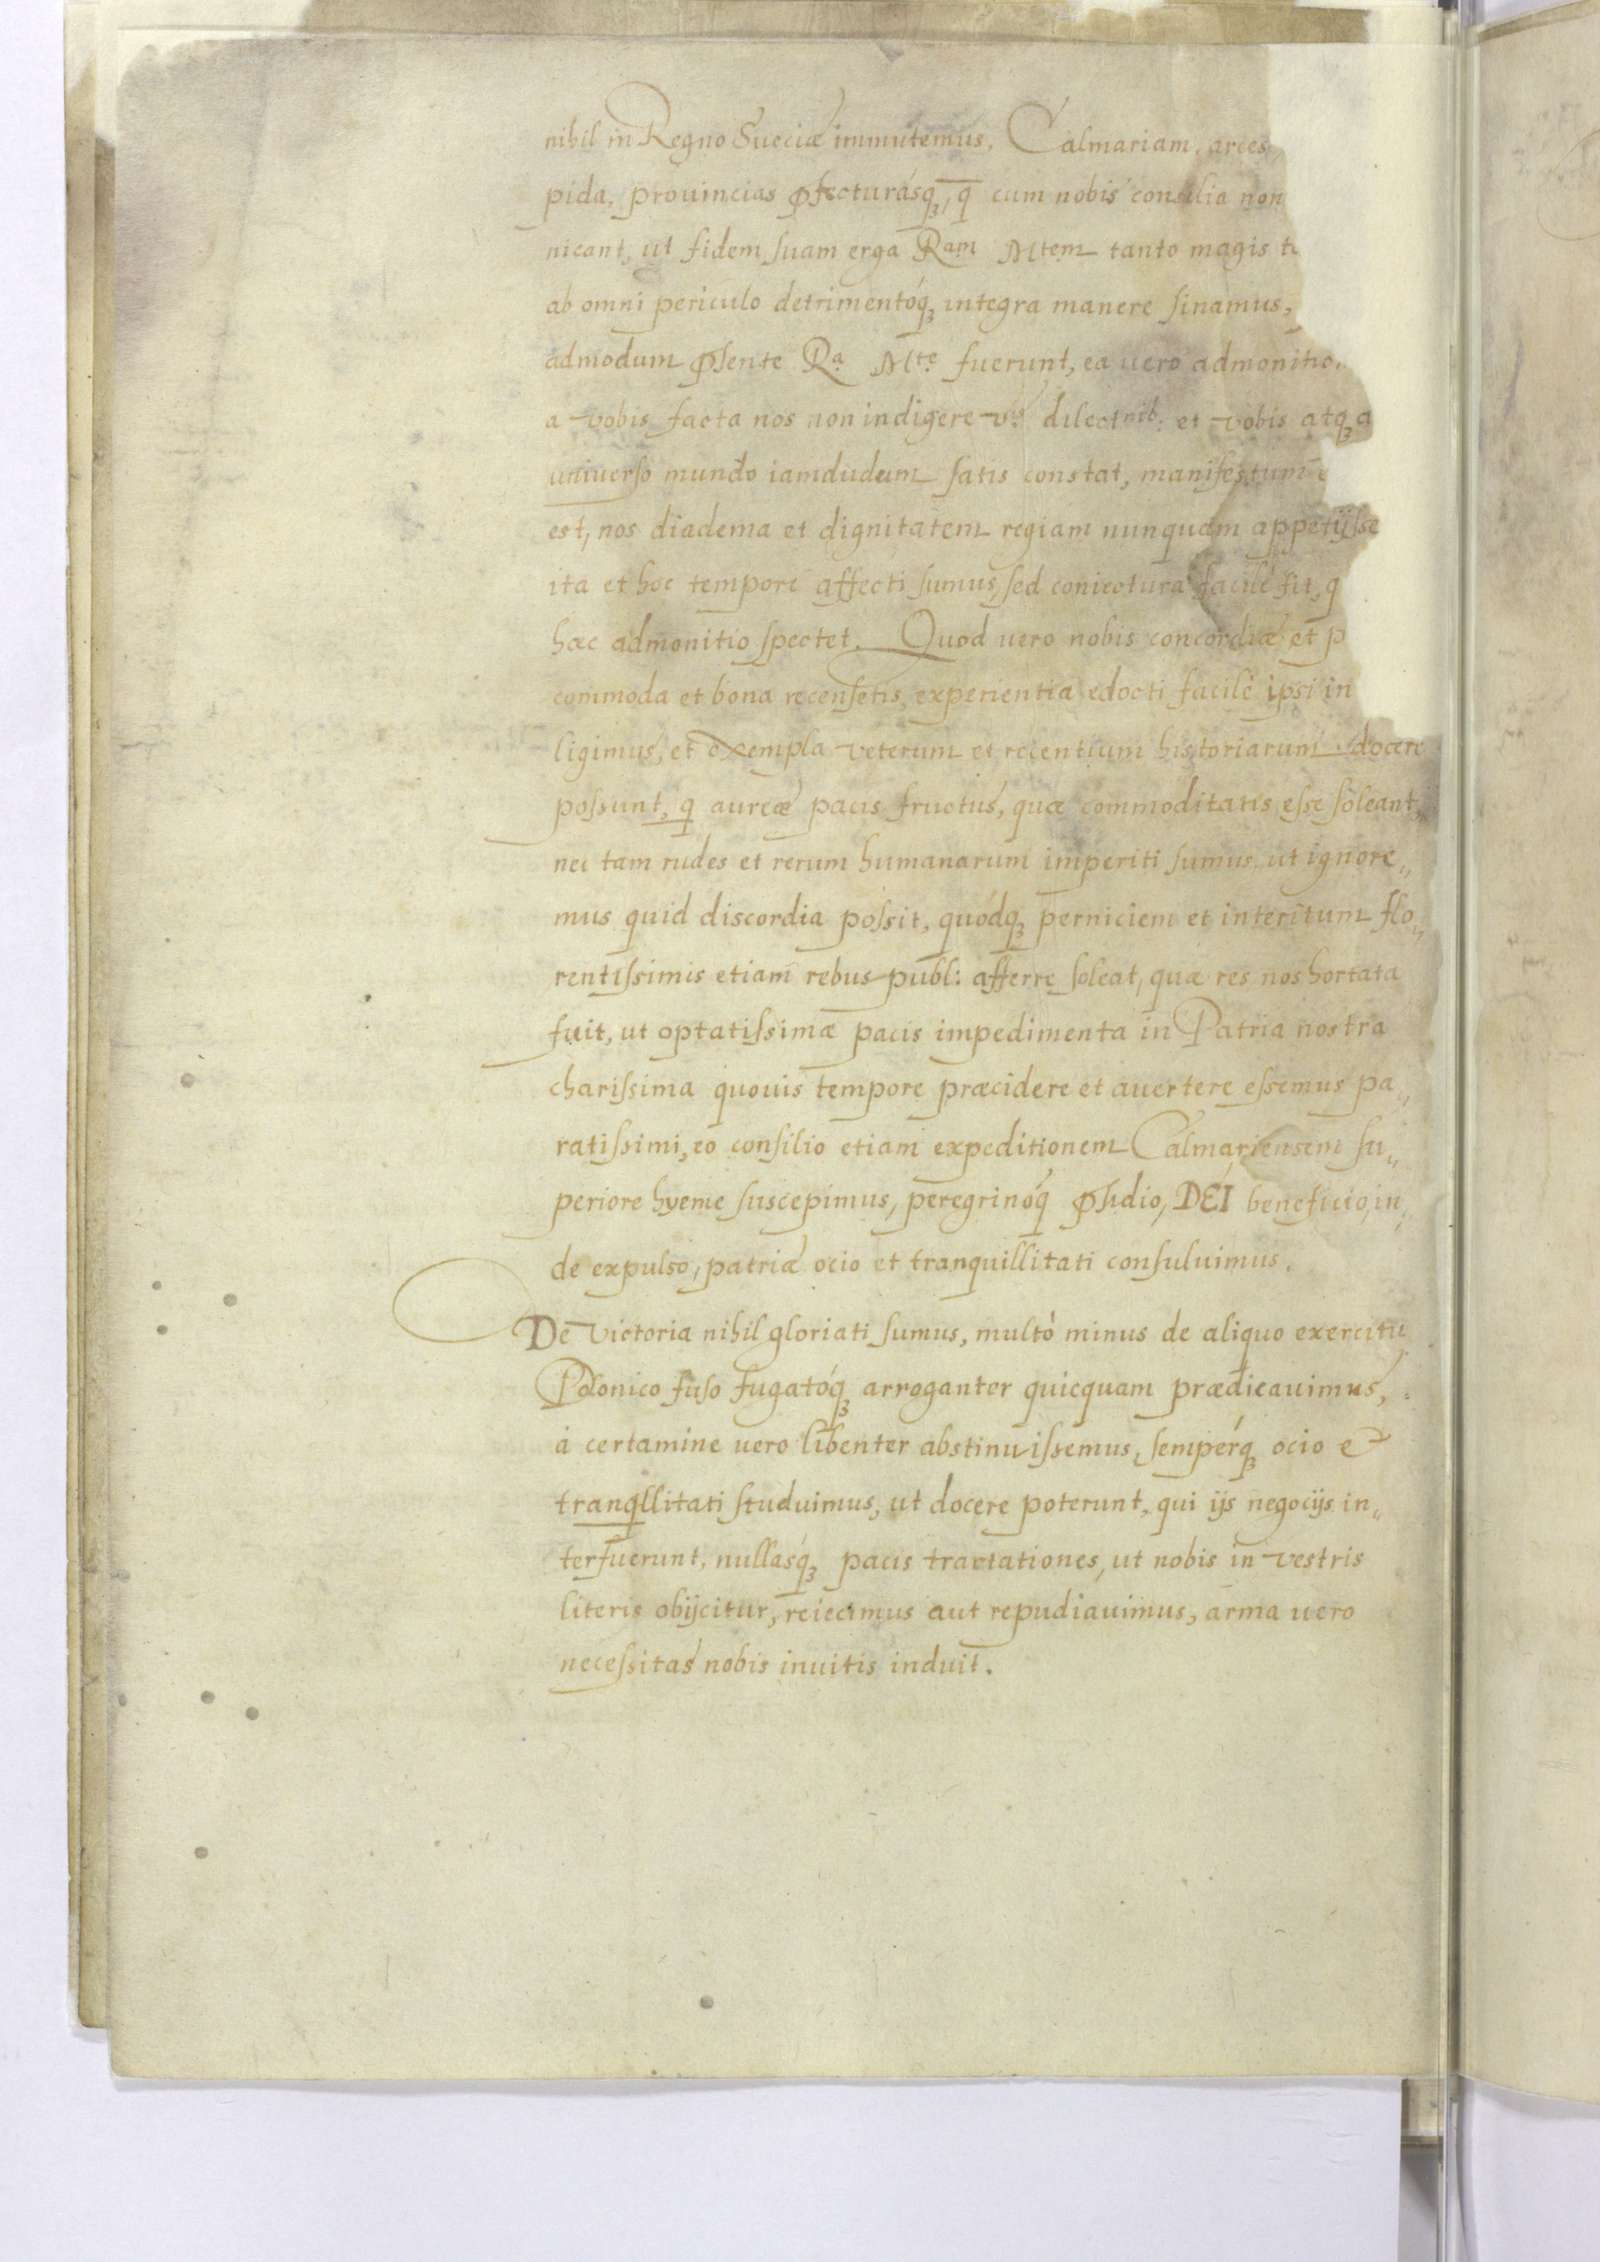 nihil in Regno Sueciæ immutemus, Calmariam, arces,
pida, prouincias pfecturásq₃, q̄ cum nobis consilia non
nicant, ut fidem suam erga Ram Mtem tanto magis
ab omni periculo detrimentóq₃ integra manere sinamus,
admodum psente Ra. Mte. fuerunt, ea uero admonitio
a vobis facta nos non indigere vris dilectnib: et vobis atq₃ a
uniuerso mundo iamdudum satis constat, manifestum
est, nos diadema et dignitatem regiam nunquam appetijsse
ita et hoc tempore affecti sumus, sed coniectura facile fit, q
hæc admonitio spectet. Quod uero nobis concordiæ et p
commoda et bona recensetis, experientia edocti facilè ipsi in
ligimus, et exempla veterum et recentium historiarum docere
possunt, q aureæ pacis fructus, quæ commoditatis esse soleant,
nec tam rudes et rerum humanarum imperiti sumus ut ignore„
mus quid discordia possit, quódq₃ perniciem et interitum flo„
rentissimis etiam rebus publ: afferre soleat, quæ res nos hortata
fuit, ut optatissimæ pacis impedimenta in Patria nostra
charissima quouis tempore præcidere et auertere essemus pa„
ratissimi, eo consilio etiam expeditionem Calmariensem su„
periore hyeme suscepimus, peregrinóq psidio, DEI beneficio, in„
de expulso, patriæ ocio et tranquillitati consuluimus.
De victoria nihil gloriati sumus, multò minus de aliquo exercitu
Polonico fuso fugatóq₃ arroganter quicquam prædicauimus,
à certamine uero libenter abstinuissemus, sempérq₃ ocio et
tranqllitati studuimus, ut docere poterunt, qui ijs negocijs in„
terfuerunt, nullasq₃ pacis tractationes, ut nobis in vestris
literis obijcitur, reiecimus aut repudiauimus, arma uero
necessitas nobis inuitis induit.